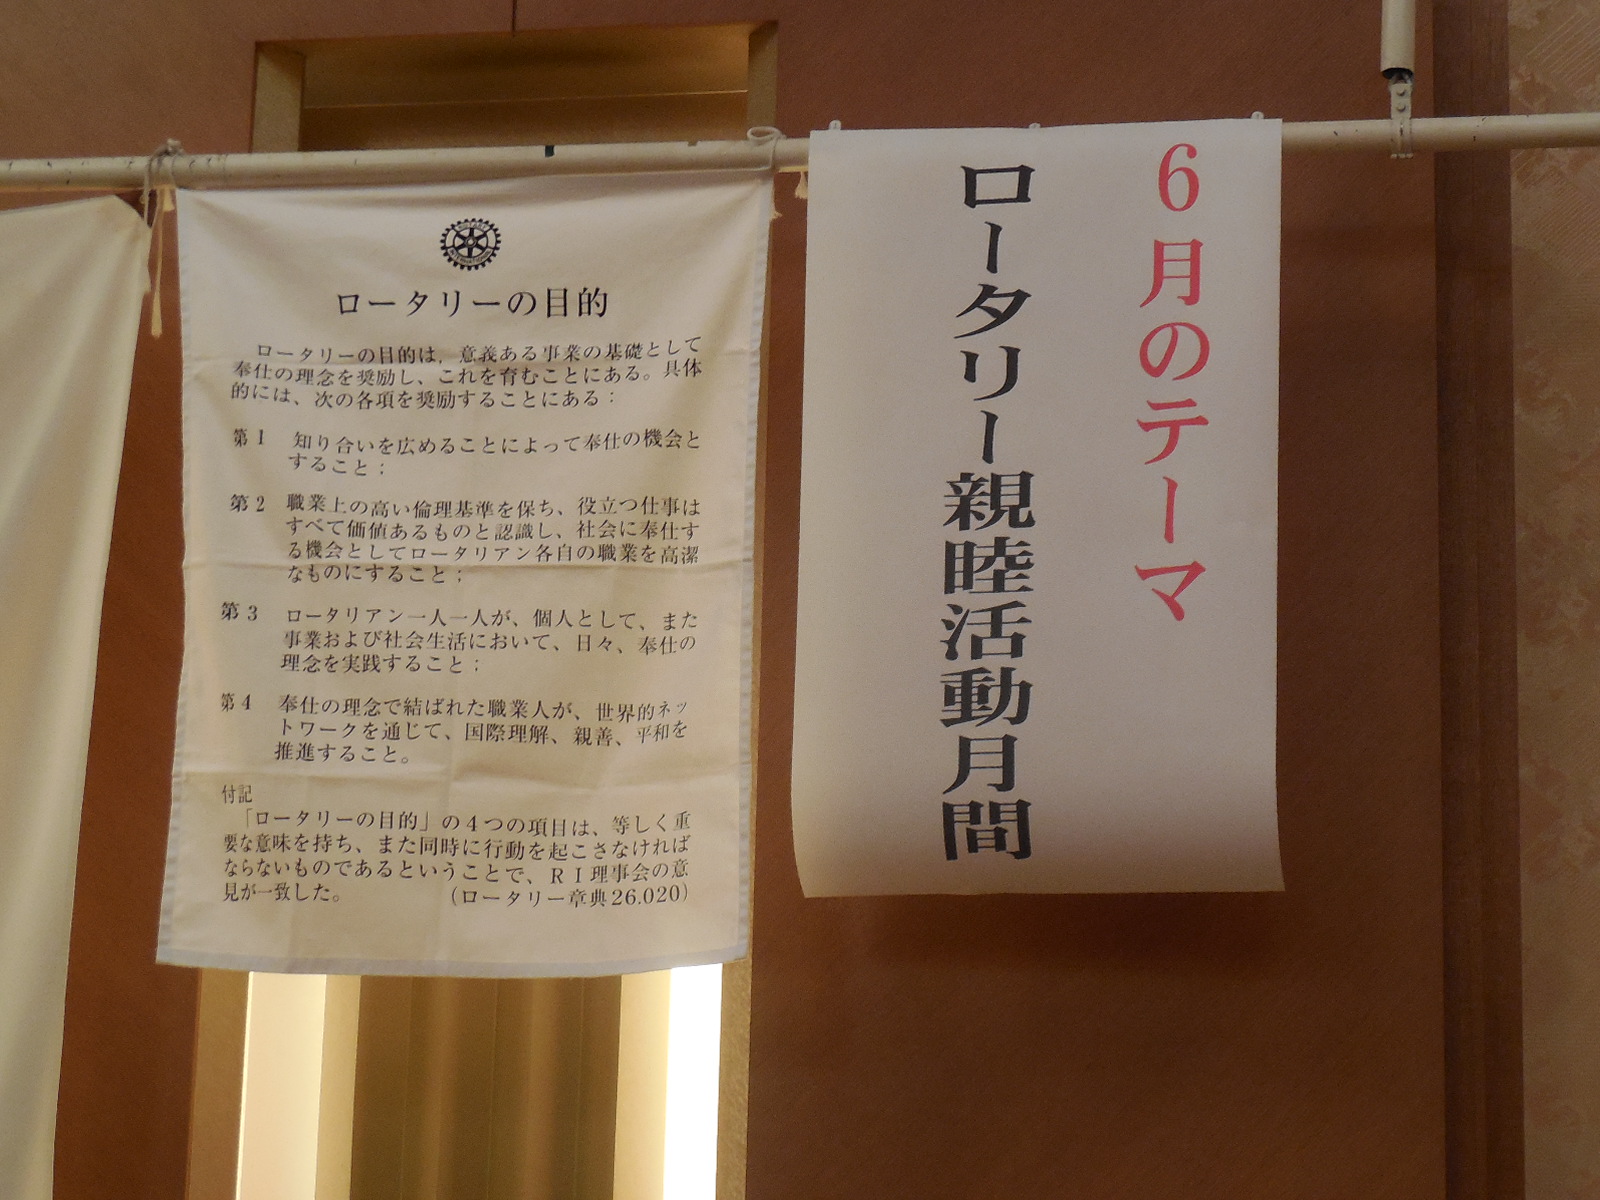 ロータリーの目的
ロータリーの目的は、意義ある事業の基礎として
奉仕の理念を奨励し、これを育むことにある。具体
的には、次の各項を奨励することにある：
第1 知り合いを広めることによって奉仕の機会と
すること；
第2 職業上の高い倫理基準を保ち、役立つ仕事は
すべて価値あるものと認識し、社会に奉仕す
る機会としてロータリアン各自の職業を高潔
なものにすること；
第3 ロータリアン一人一人が、個人として、また
事業および社会生活において、日々、奉仕の
理念を実践すること；
第4 奉仕の理念で結ばれた職業人が、世界的ネッ
トワークを通じて、国際理解、親善、平和を
推進すること。
付記
「ロータリーの目的」の4つの項目は、等しく重
要な意味を持ち、また同時に行動を起こさなければ
ならないものであるということで、RI理事会の意
見が一致した。 （ロータリー章典26.020）
6月のテーマ
ロータリー親睦活動月間